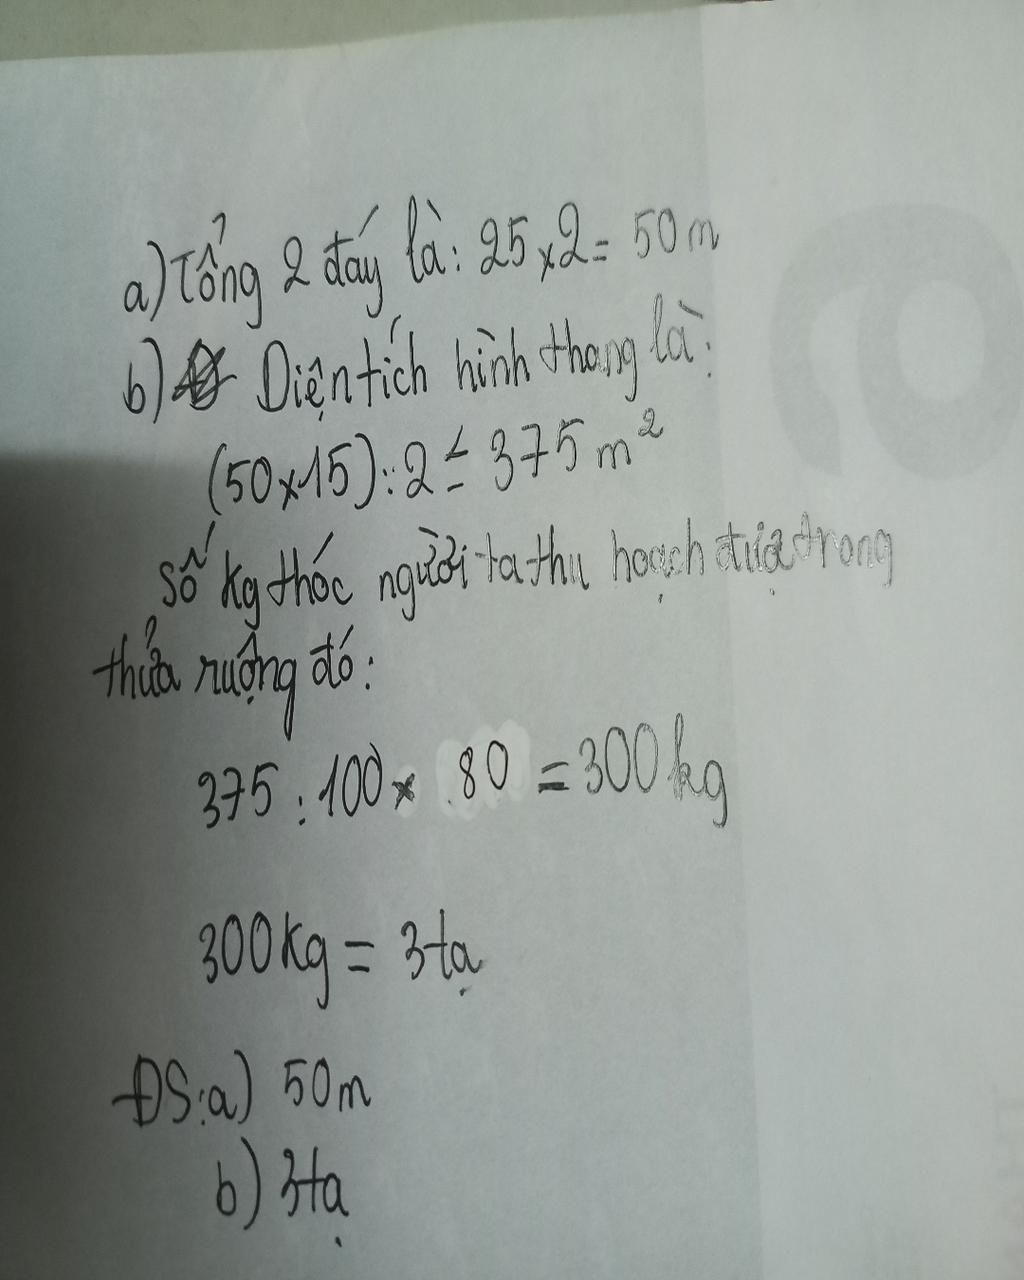 a) Tổng 2 đáy là: 25 x 2 = 50 m
b) Diện tích hình thang là:
(50 x 15) : 2 = 375 m²
số kg thóc người ta thu hoạch được trong
thửa ruộng đó:
375 : 100 x 80 = 300 kg
300 kg = 3 tạ
ĐS: a) 50 m
b) 3 tạ